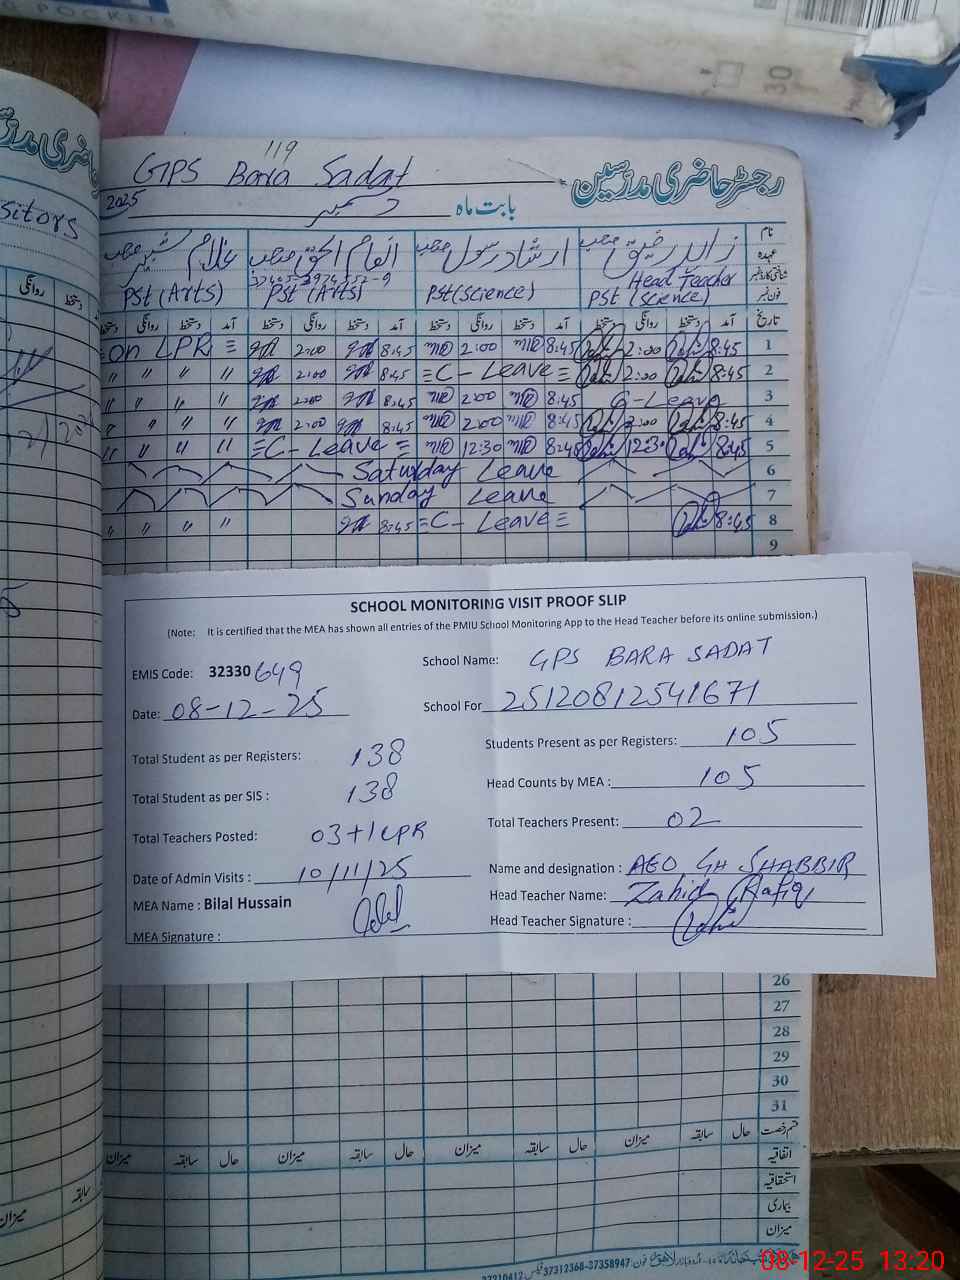 POCKETS
30
119
GPS Bara Sadat رجسٹر حاضری مدرسین
2025 دسمبر بابت ماہ
sitors
غلام شبیر صاحب انعام الحق صاحب ارشاد رسول صاحب زاہد رفیق صاحب نام
Head Teacher عہدہ
PST (Arts) PST (Arts) PST (Science) PST (Science) فون نمبر
دستخط روانگی دستخط آمد دستخط روانگی دستخط آمد دستخط روانگی دستخط آمد دستخط روانگی دستخط آمد تاریخ
= on LPR = 2:00 8:45 2:00 8:45 2:00 8:45 1
" " " " 2:00 8:45 = C - Leave = 2:00 8:45 2
" " " " 2:00 8:45 2:00 8:45 C - Leave 3
" " " " 2:00 8:45 2:00 8:45 2:00 8:45 4
" " " " = C - Leave = 12:30 8:45 12:30 8:45 5
Saturday Leave 6
Sunday Leave 7
" " " " 8:45 = C - Leave = 8:45 8
9
SCHOOL MONITORING VISIT PROOF SLIP
(Note: It is certified that the MEA has shown all entries of the PMIU School Monitoring App to the Head Teacher before its online submission.)
EMIS Code: 32330649 School Name: GPS BARA SADAT
Date: 08-12-25 School For 25120812541671
Total Student as per Registers: 138 Students Present as per Registers: 105
Total Student as per SIS : 138 Head Counts by MEA : 105
Total Teachers Posted: 03+1 LPR Total Teachers Present: 02
Date of Admin Visits : 10/11/25 Name and designation : AEO GH SHABBIR
MEA Name : Bilal Hussain Head Teacher Name: Zahid Rafiq
MEA Signature : Head Teacher Signature :
26
27
28
29
30
31
میزان سابقہ حال میزان سابقہ حال میزان سابقہ حال میزان سابقہ حال قسم رخصت
اتفاقیہ
استحقاقیہ
بیماری
میزان
37312368-37358947 فون
08-12-25 13:20